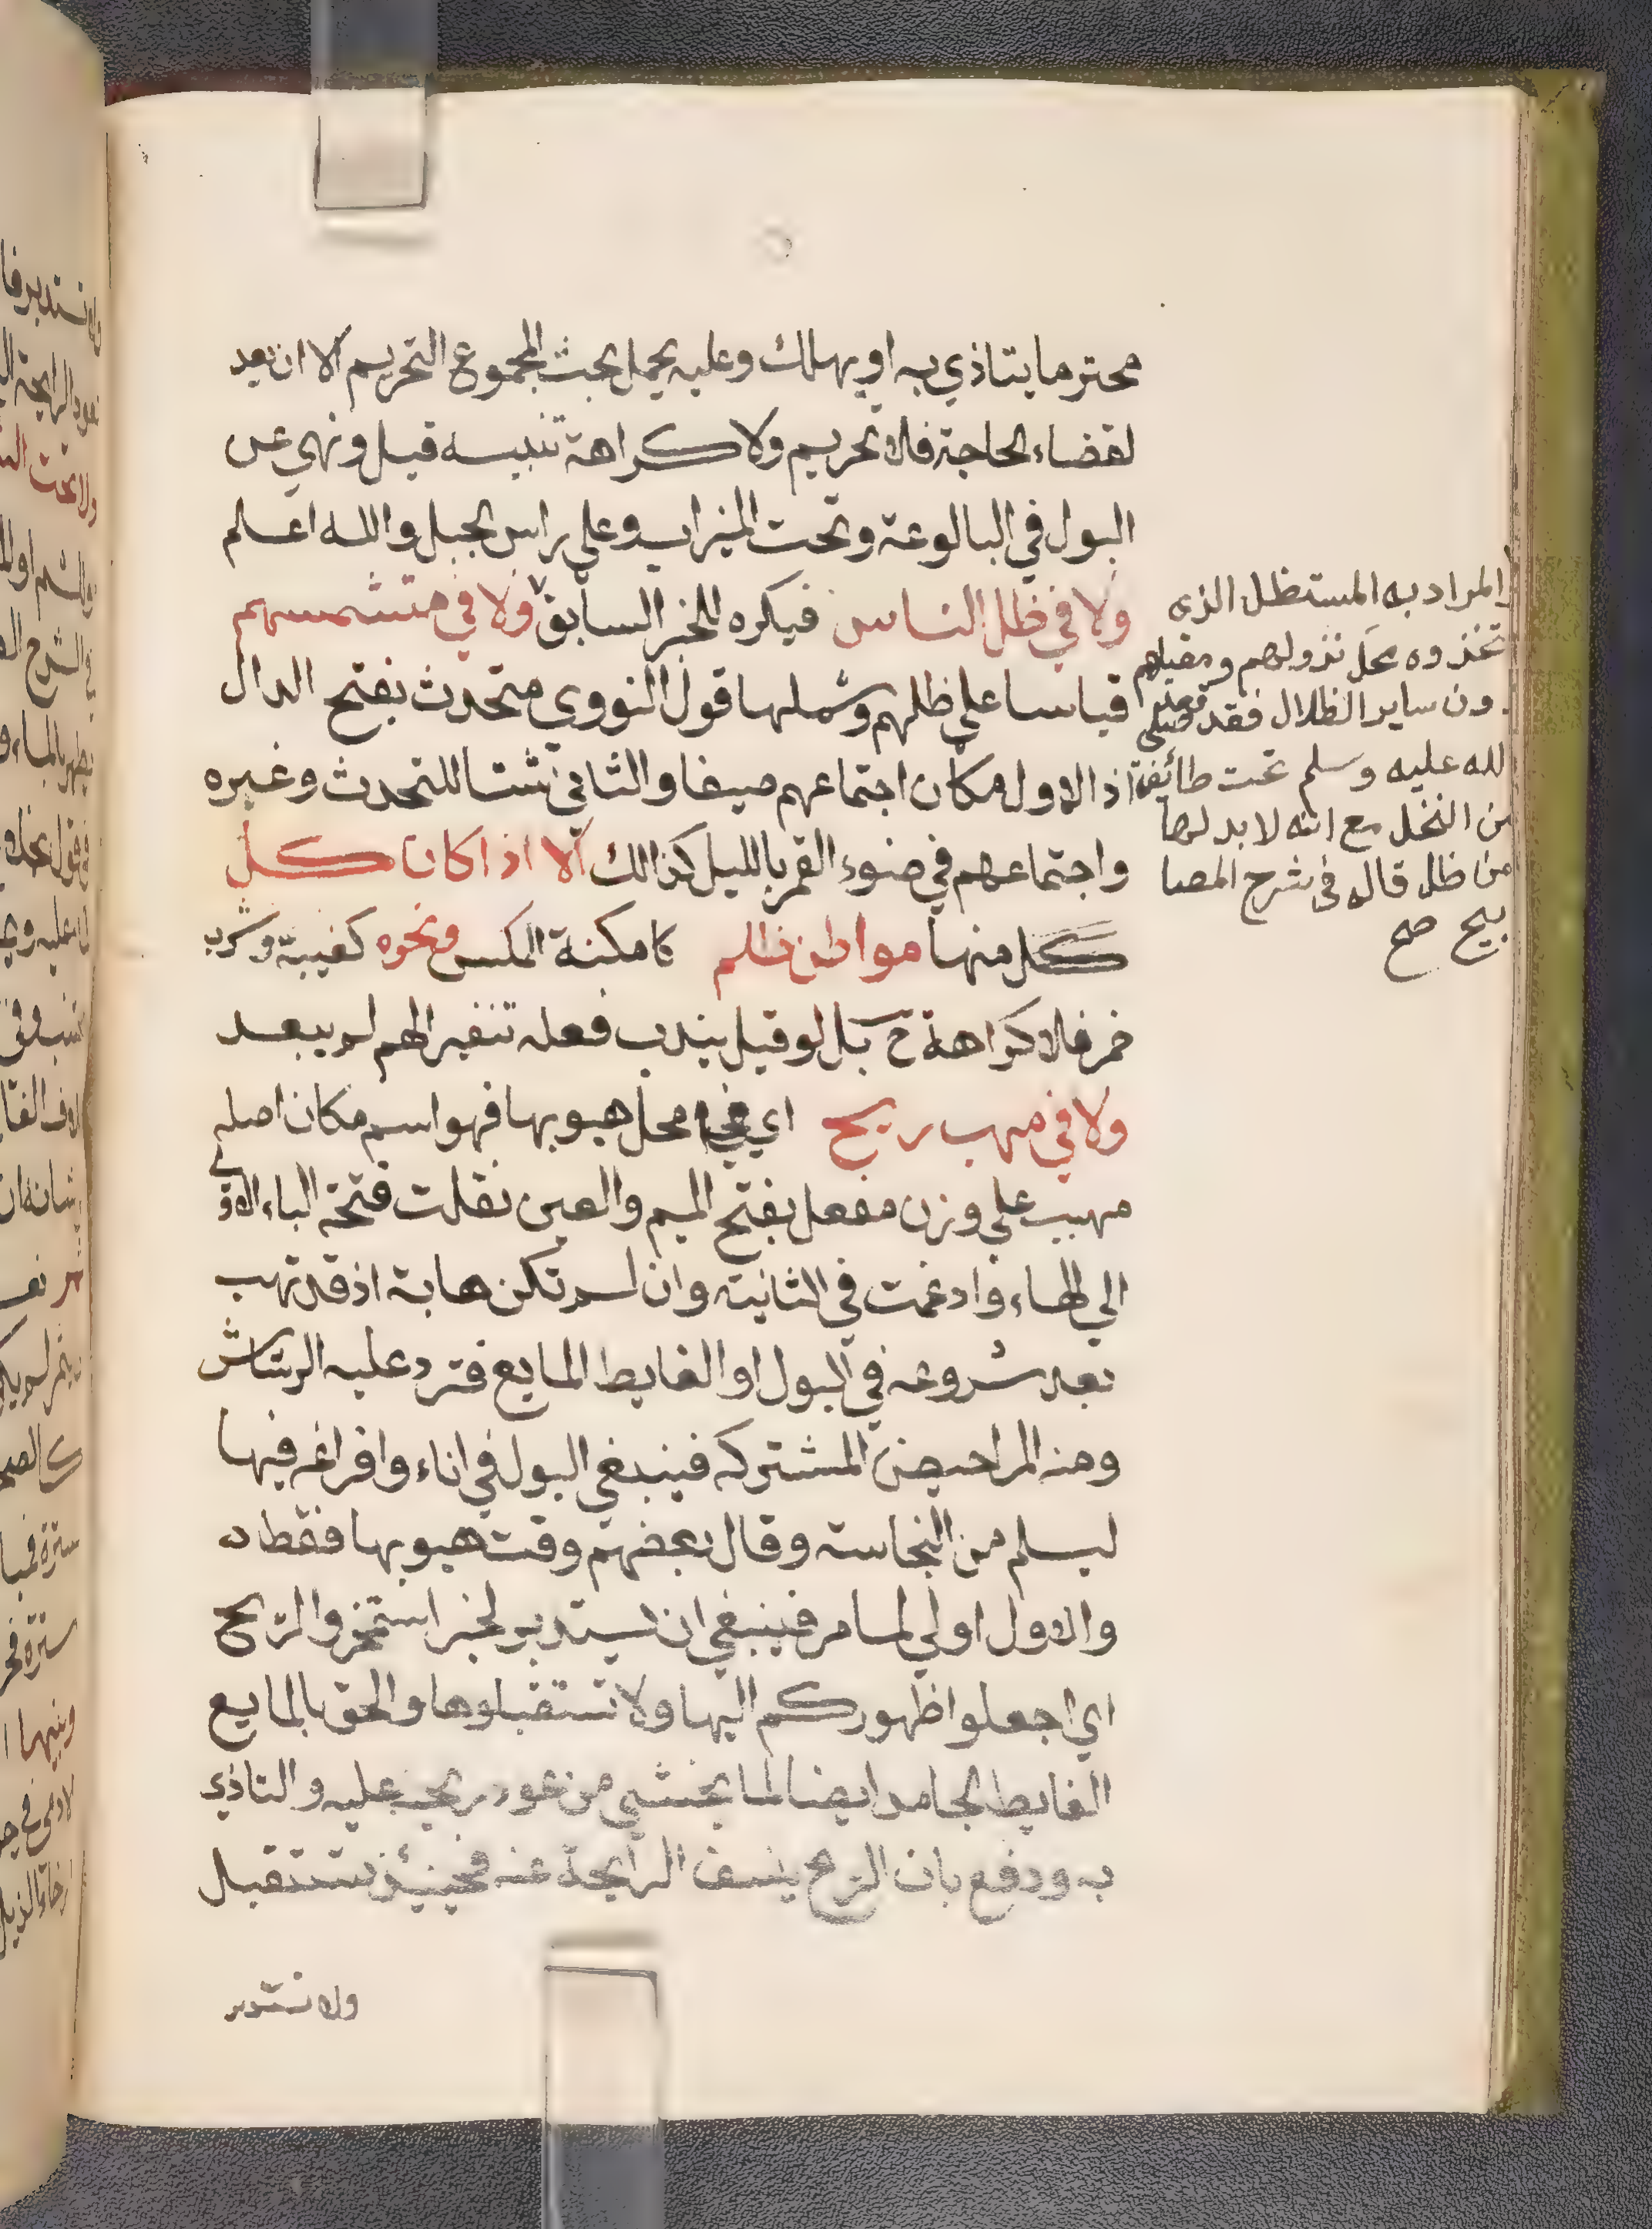 محترما يتاذي به او يهلك وعليه يحمل بحث المجموع التحريم الا ان يعد
لقضاء الحاجة فلا تحريم ولا كراهة تنبيه قيل ونهي عن
البول في البالوعة وتحت الميزاب وعلي راس الجبل والله اعلم
ولا في ظل الناس فيكره للخبر السابق ولا في متشمسهم
قياسا علي ظلهم وشملها قول النووي متحدث بفتح الدال
اذ الاول مكان اجتماعهم صيفا والثاني شتا للتحدث وغيره
واجتماعهم في ضوء القمر بالليل كذالك الا اذا كان كل
كل منها مواطن ظلم كامكنة المكس ونحوه كغيبة وشرب
خمر فلا كراهة ح بل لو قيل يندب فعله تنفيرا لهم لم يبعد
ولا في مهب ريح اي محل هبوبها فهو اسم مكان اصله
مهبب علي وزن مفعل بفتح الميم والعين نقلت فتحة الباء الاولي
الي الهاء وادغمت في الثانية وان لم تكن هابة اذ قد تهب
بعد شروعه في البول او الغايط المايع فترد عليه الرشاش
ومنه المراحيض المشتركة فينبغي البول في اناء وافراغه فيها
ليسلم من النجاسة وقال بعضهم وقت هبوبها فقط
والاول اولي لما مر فينبغي ان يستدبر لخبر استمخروا الريح
اي اجعلوا ظهوركم اليها ولا تستقبلوها والحق بالمايع
الغايط الجامد ايضا لما يخشي من عود ريحه عليه والتاذي
به ودفع بان الريح ينسف الرايحة عنه فحينئذ يستقبل
ولا يستدبر
المراد به المستظل الذي
تخذوه محل نزولهم ومقيلهم
دون ساير الظلال فقد قعد صلي
الله عليه وسلم تحت طائفة
من النخل مع انه لا بد لها
من ظل قاله في شرح المصا
بيح صح